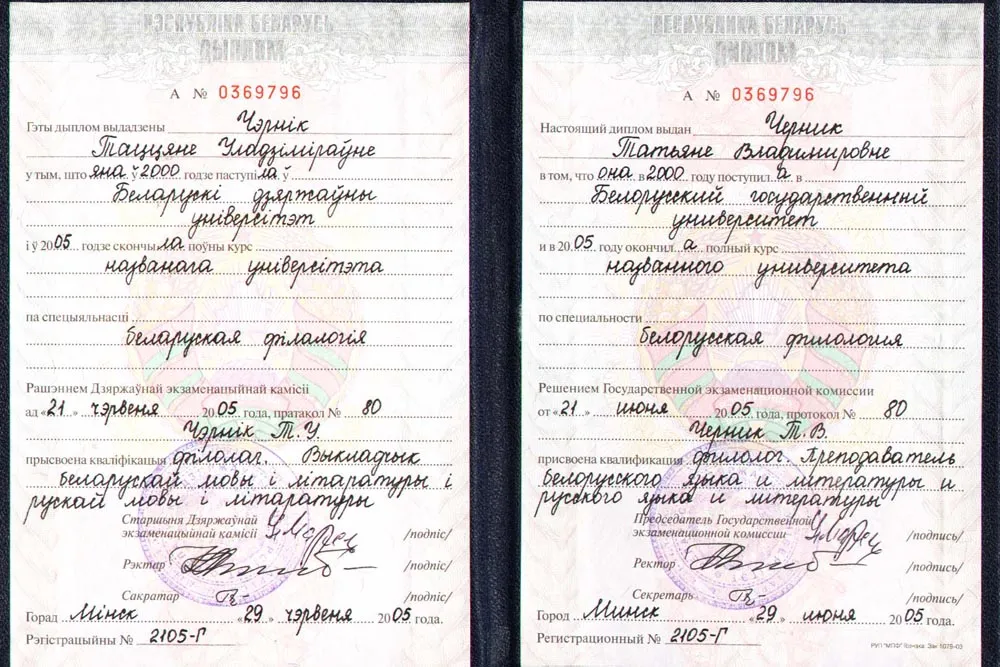 РЭСПУБЛІКА БЕЛАРУСЬ
ДЫПЛОМ
А № 0369796
Гэты дыплом выдадзены Чэрнік
Таццяне Уладзіміраўне
у тым, што яна ў 2000 годзе паступіла ў
Беларускі дзяржаўны
універсітэт
і ў 2005 годзе скончыла поўны курс
названага універсітэта
па спецыяльнасці
беларуская філалогія
Рашэннем Дзяржаўнай экзаменацыйнай камісіі
ад «21» чэрвеня 2005 года, пратакол № 80
Чэрнік Т. У.
прысвоена кваліфікацыя філолаг. Выкладчык
беларускай мовы і літаратуры і
рускай мовы і літаратуры
Старшыня Дзяржаўнай
экзаменацыйнай камісіі /подпіс/
Рэктар /подпіс/
Сакратар /подпіс/
Горад Мінск «29» чэрвеня 2005 года.
Рэгістрацыйны № 2105-Г
РЕСПУБЛИКА БЕЛАРУСЬ
ДИПЛОМ
А № 0369796
Настоящий диплом выдан Черник
Татьяне Владимировне
в том, что она в 2000 году поступила в
Белорусский государственный
университет
и в 2005 году окончила полный курс
названного университета
по специальности
белорусская филология
Решением Государственной экзаменационной комиссии
от «21» июня 2005 года, протокол № 80
Черник Т. В.
присвоена квалификация филолог. Преподаватель
белорусского языка и литературы и
русского языка и литературы
Председатель Государственной
экзаменационной комиссии /подпись/
Ректор /подпись/
Секретарь /подпись/
Город Минск «29» июня 2005 года.
Регистрационный № 2105-Г
РУП "МПФ" Гознака. Зак 1078-03